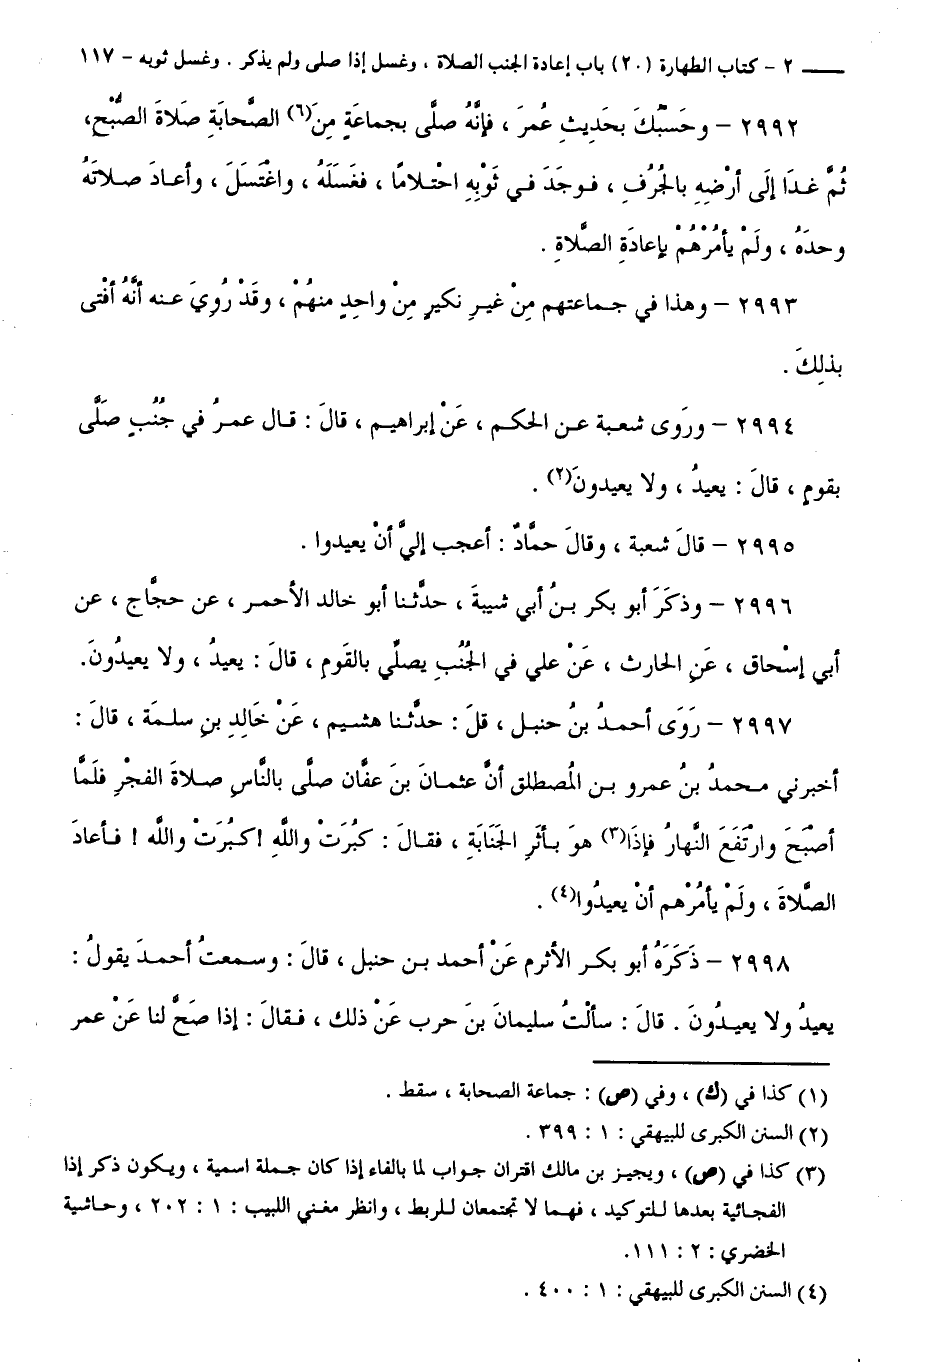 ٢ - كتاب الطهارة (٢٠) باب إعادة الجنب الصلاة ، وغسل إذا صلى ولم يذكر . وغسل ثوبه - ١١٧
٢٩٩٢ - وحَسْبُكَ بحَدِيثِ عُمرَ ، فإنَّهُ صلَّى بجماعَةٍ مِنَ(٦) الصَّحابَةِ صَلاةَ الصُّبْحِ،
ثُمَّ غَدَا إلَى أرْضِهِ بالجُرُفِ ، فوجَدَ في ثَوْبِهِ احْتلامًا ، فغَسَلَهُ ، واغْتَسَلَ ، وأعادَ صلاتَهُ
وحدَهُ ، ولَمْ يأمُرْهُمْ بإعادَةِ الصَّلاةِ .
٢٩٩٣ - وهذا في جماعتهم مِنْ غيرِ نكيرٍ مِنْ واحِدٍ منهُمْ ، وقَدْ رُوِيَ عنه أنَّهُ أفْتى
بذلِكَ .
٢٩٩٤ - ورَوى شعبة عن الحكم ، عَنْ إبراهيم ، قالَ : قال عمرُ في جُنُبٍ صَلَّى
بقومٍ ، قالَ : يعيدُ ، ولا يعيدونَ(٢) .
٢٩٩٥ - قالَ شعبة ، وقالَ حمَّادٌ : أعجب إليَّ أنْ يعيدوا .
٢٩٩٦ - وذكَرَ أبو بكر بنُ أبي شيبةَ ، حدَّثنا أبو خالد الأحمر ، عن حجَّاج ، عن
أبي إسْحاق ، عَنِ الحارث ، عَنْ علي في الجُنُبِ يصلِّي بالقَومِ ، قالَ : يعيدُ ، ولا يعيدُونَ.
٢٩٩٧ - رَوَى أحمدُ بنُ حنبل ، قلَ : حدَّثنا هشيم ، عَنْ خَالِدِ بنِ سلمَة ، قالَ :
أخبرني محمدُ بنُ عمرو بن المُصطلق أنَّ عثمانَ بنَ عفَّان صلَّى بالنَّاسِ صلاةَ الفجْرِ فلَمَّا
أصْبَحَ وارْتَفَعَ النَّهارُ فإذَا(٣) هوَ بأثَرِ الجَنَابَةِ ، فقالَ : كبُرَتْ واللَّهِ ! كبُرَتْ واللَّه ! فأعادَ
الصَّلاةَ ، ولَمْ يأمُرْهم أنْ يعيدُوا(٤) .
٢٩٩٨ - ذَكَرَهُ أبو بكر الأثرم عَنْ أحمد بن حنبل ، قالَ : وسمعتُ أحمدَ يقولُ :
يعيدُ ولا يعيدُونَ . قالَ : سألْتُ سليمانَ بنَ حرب عَنْ ذلك ، فقالَ : إذا صَحَّ لنا عَنْ عمر
(١) كذا في (ك) ، وفي (ص) : جماعة الصحابة ، سقط .
(٢) السنن الكبرى للبيهقي : ١ : ٣٩٩ .
(٣) كذا في (ص) ، ويجيز بن مالك اقتران جواب لما بالفاء إذا كان جملة اسمية ، ويكون ذكر إذا
الفجائية بعدها للتوكيد ، فهما لا تجتمعان للربط ، وانظر مغني اللبيب : ١ : ٢٠٢ ، وحاشية
الخضري : ٢ : ١١١.
(٤) السنن الكبرى للبيهقي : ١ : ٤٠٠ .